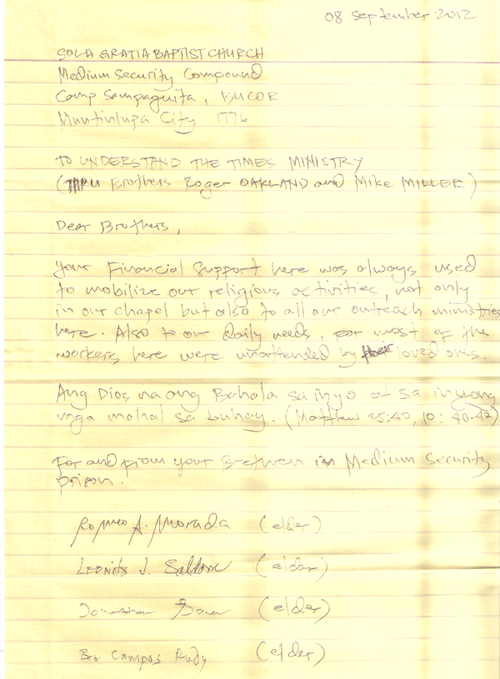 08 September 2012
SOLA GRATIA BAPTIST CHURCH
Medium Security Compound
Camp Sampaguita, BUCOR
Muntinlupa City 1776
TO UNDERSTAND THE TIMES MINISTRY
(THRU Brothers Roger OAKLAND and Mike MILLER)
Dear Brothers,
Your Financial Support here was always used
to mobilize our religious activities, not only
in our chapel but also to all our outreach ministries
here. Also to our daily needs, for most of the
workers here were unattended by their loved ones.
Ang Dios na ang Bahala sa inyo at sa inyong
mga mahal sa buhay. (Matthew 25:40, 10:40-42)
For and from your Brethren in Medium Security
prison.
Romeo A. Morada (elder)
Leonito J. (elder)
(elder)
Bro Campos Rudy (elder)